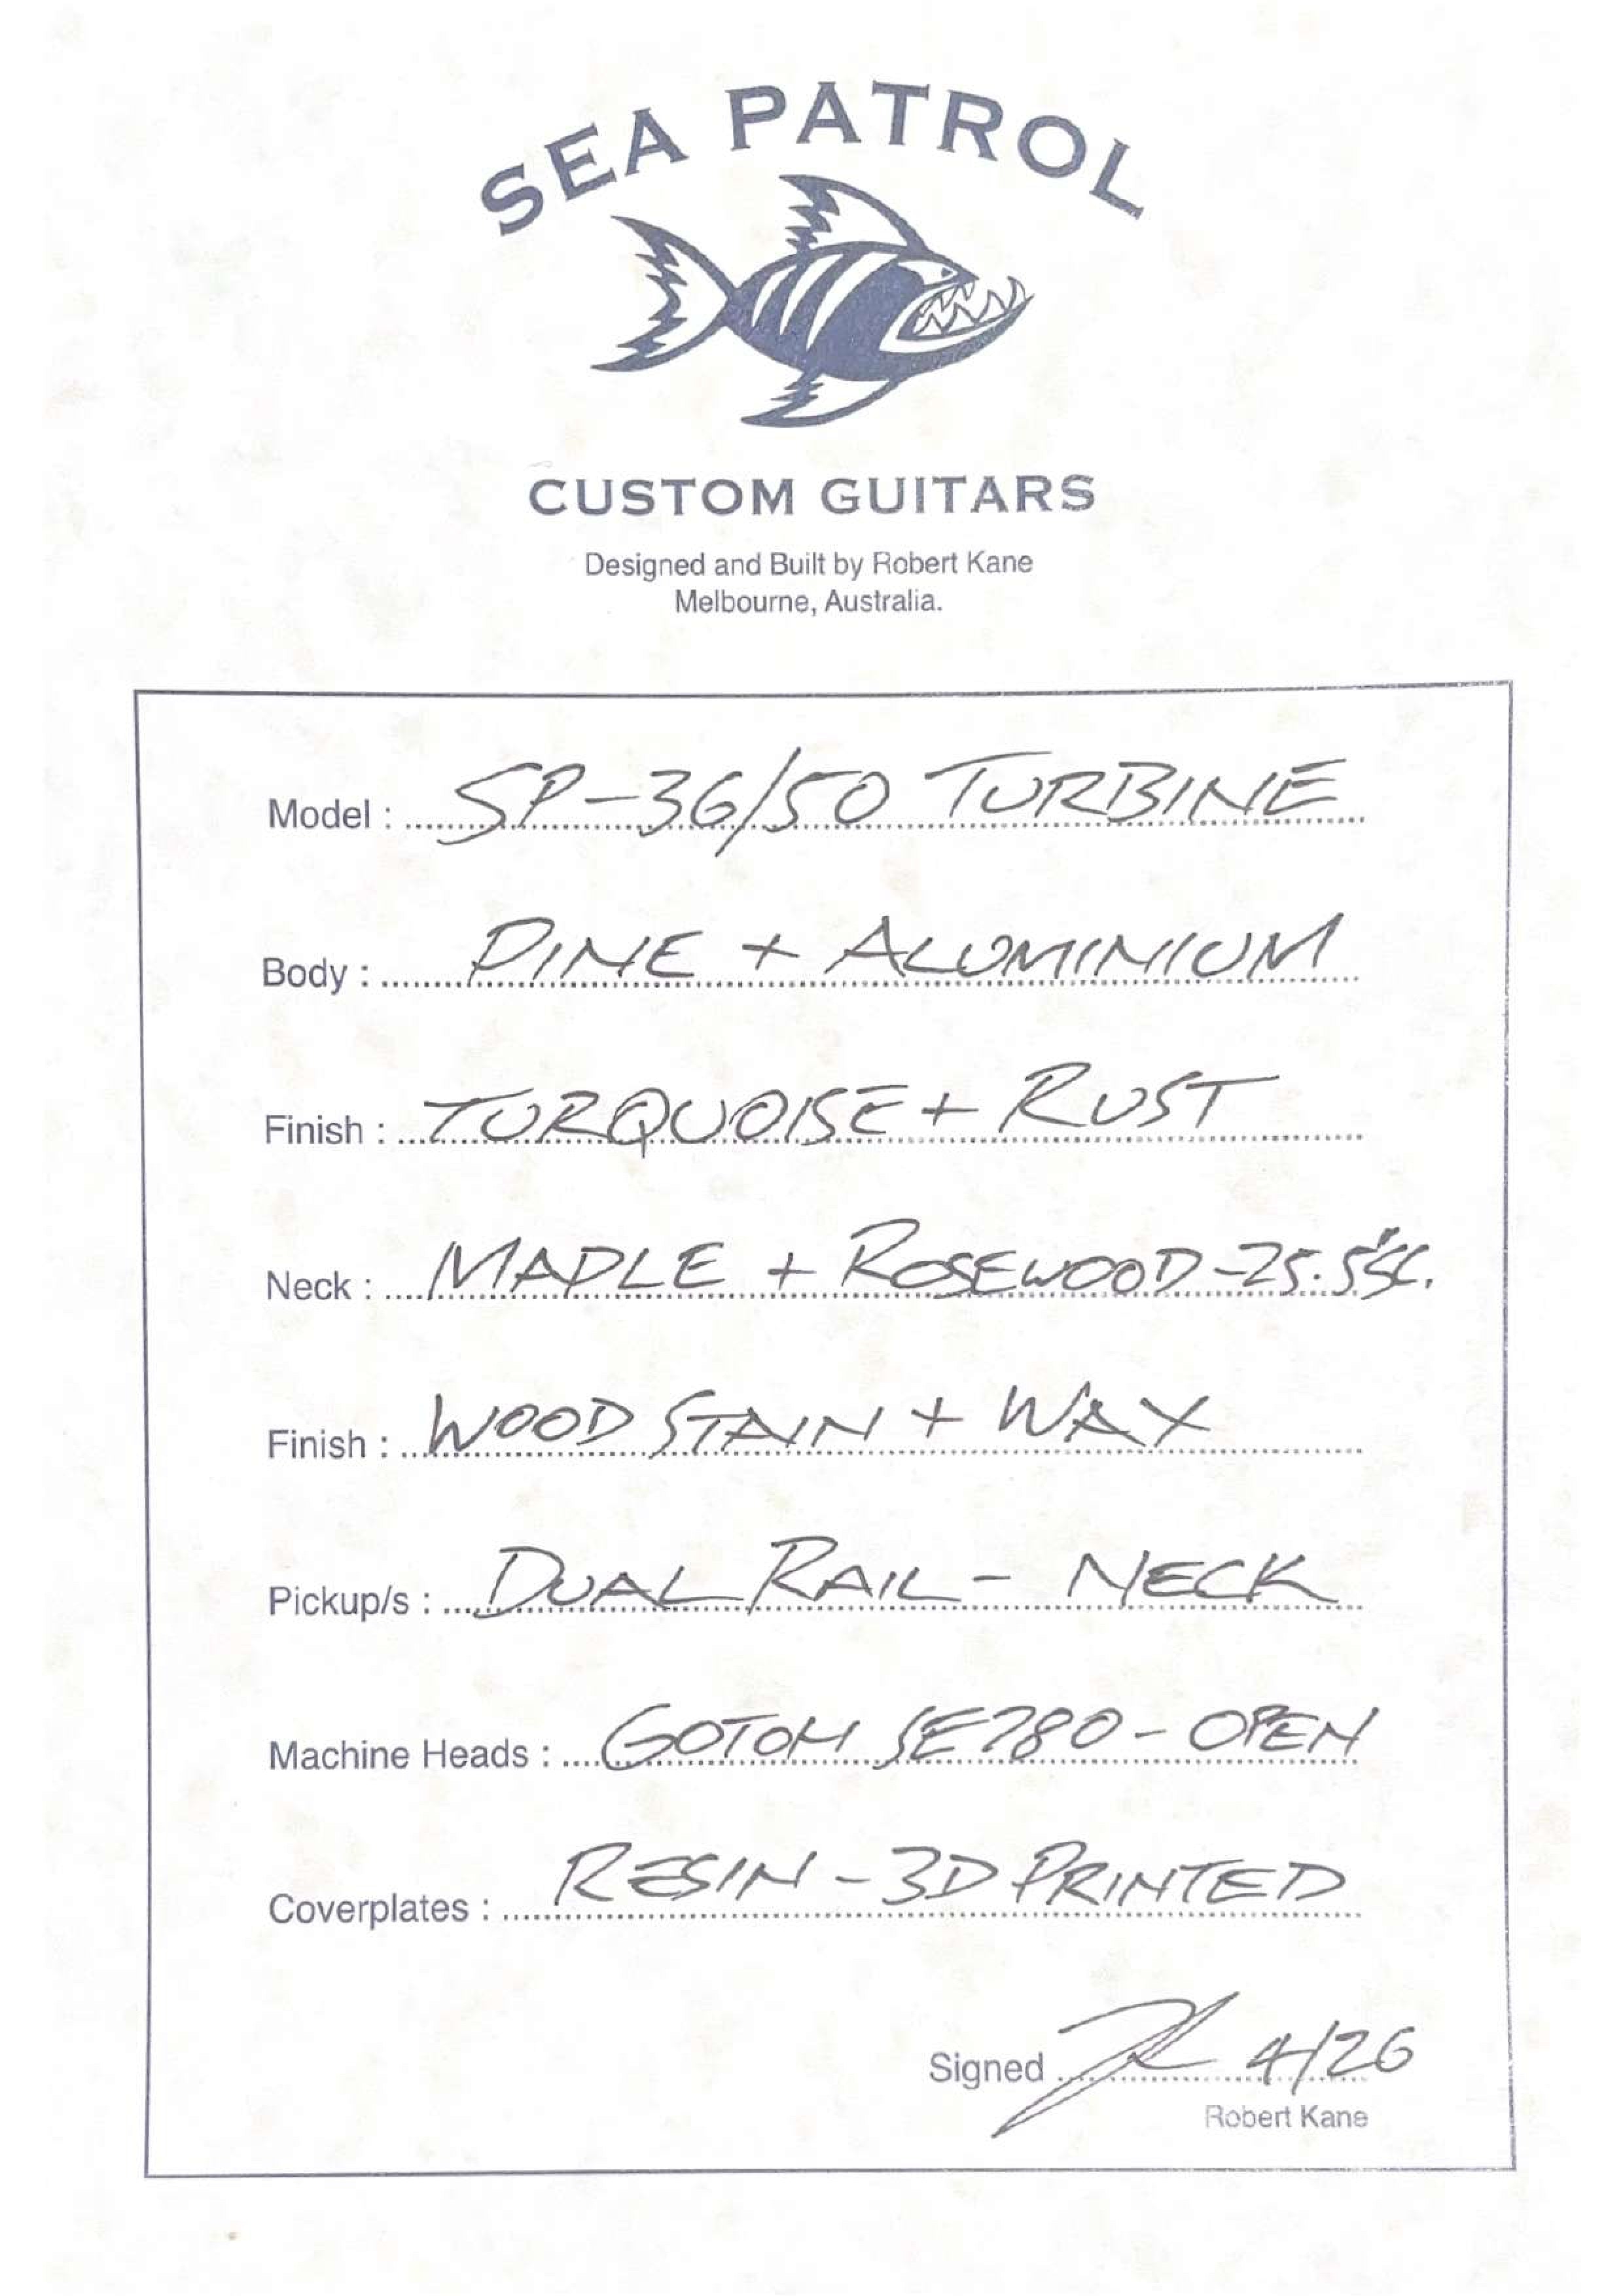 SEA PATROL
CUSTOM GUITARS
Designed and Built by Robert Kane
Melbourne, Australia.
Model : SP-36/50 TURBINE
Body : PINE + ALUMINIUM
Finish : TURQUOISE + RUST
Neck : MAPLE + ROSEWOOD - 25.5" SC.
Finish : WOOD STAIN + WAX
Pickup/s : DUAL RAIL - NECK
Machine Heads : GOTOH SE780 - OPEN
Coverplates : RESIN - 3D PRINTED
Signed 4/26
Robert Kane